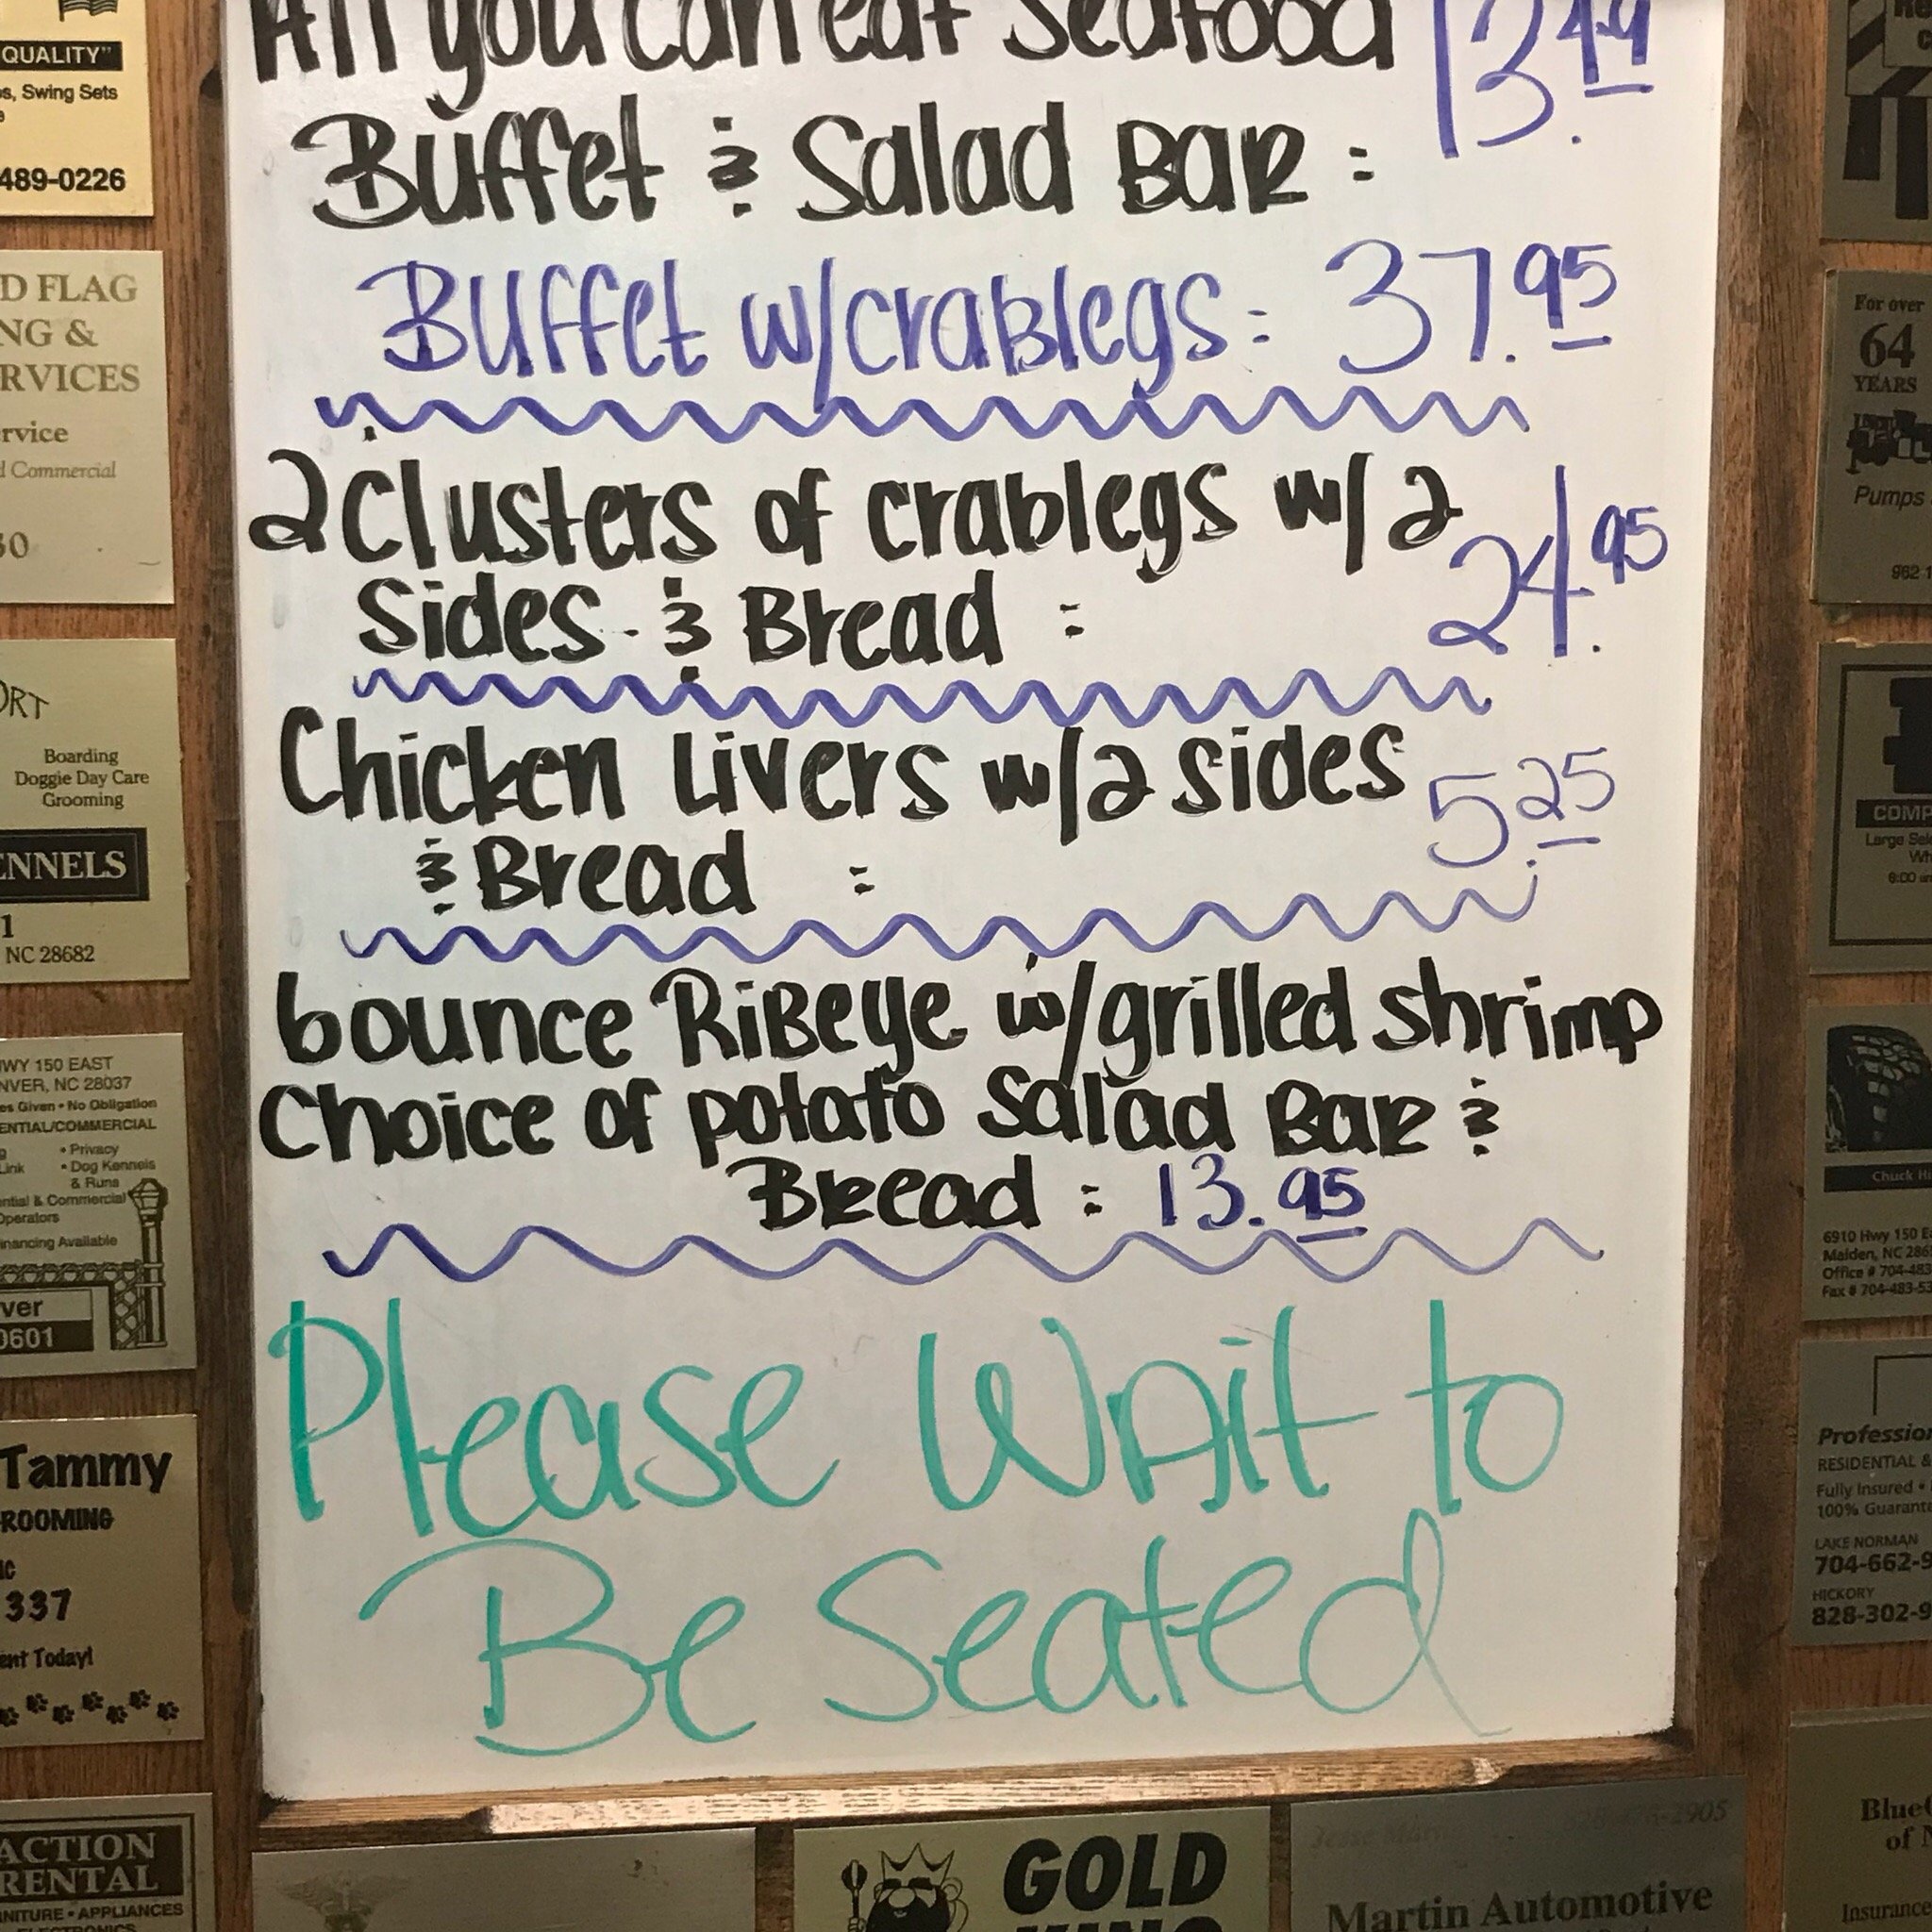 All you can eat Seafood
Buffet & Salad Bar : 13.49
Buffet w/crablegs : 37.95
2 Clusters of crablegs w/ 2
Sides & Bread : 24.95
Chicken Livers w/2 sides
& Bread : 5.25
6ounce RiBeye w/grilled shrimp
Choice of potato Salad Bar &
Bread : 13.95
Please Wait to
Be Seated
QUALITY"
Swing Sets
489-0226
D FLAG
NG &
RVICES
rvice
Commercial
ORT
Boarding
Doggie Day Care
Grooming
ENNELS
NC 28682
WY 150 EAST
NVER, NC 28037
es Given • No Obligation
ENTIAL/COMMERCIAL
• Privacy
Link • Dog Kennels
& Runs
ential & Commercial
Operators
inancing Available
ver
0601
Tammy
ROOMING
337
ent Today!
ACTION
RENTAL
NITURE • APPLIANCES
ELECTRONICS
GOLD
KING
2905
Martin Automotive
For over
64
YEARS
Pumps
COMP
Large Sel
Chuck Hi
6910 Hwy 150 Ea
Maiden, NC 286
Office # 704-483
Fax # 704-483-53
Profession
RESIDENTIAL &
Fully Insured •
100% Guarante
LAKE NORMAN
704-662-9
HICKORY
828-302-9
Blue
of N
Insurance